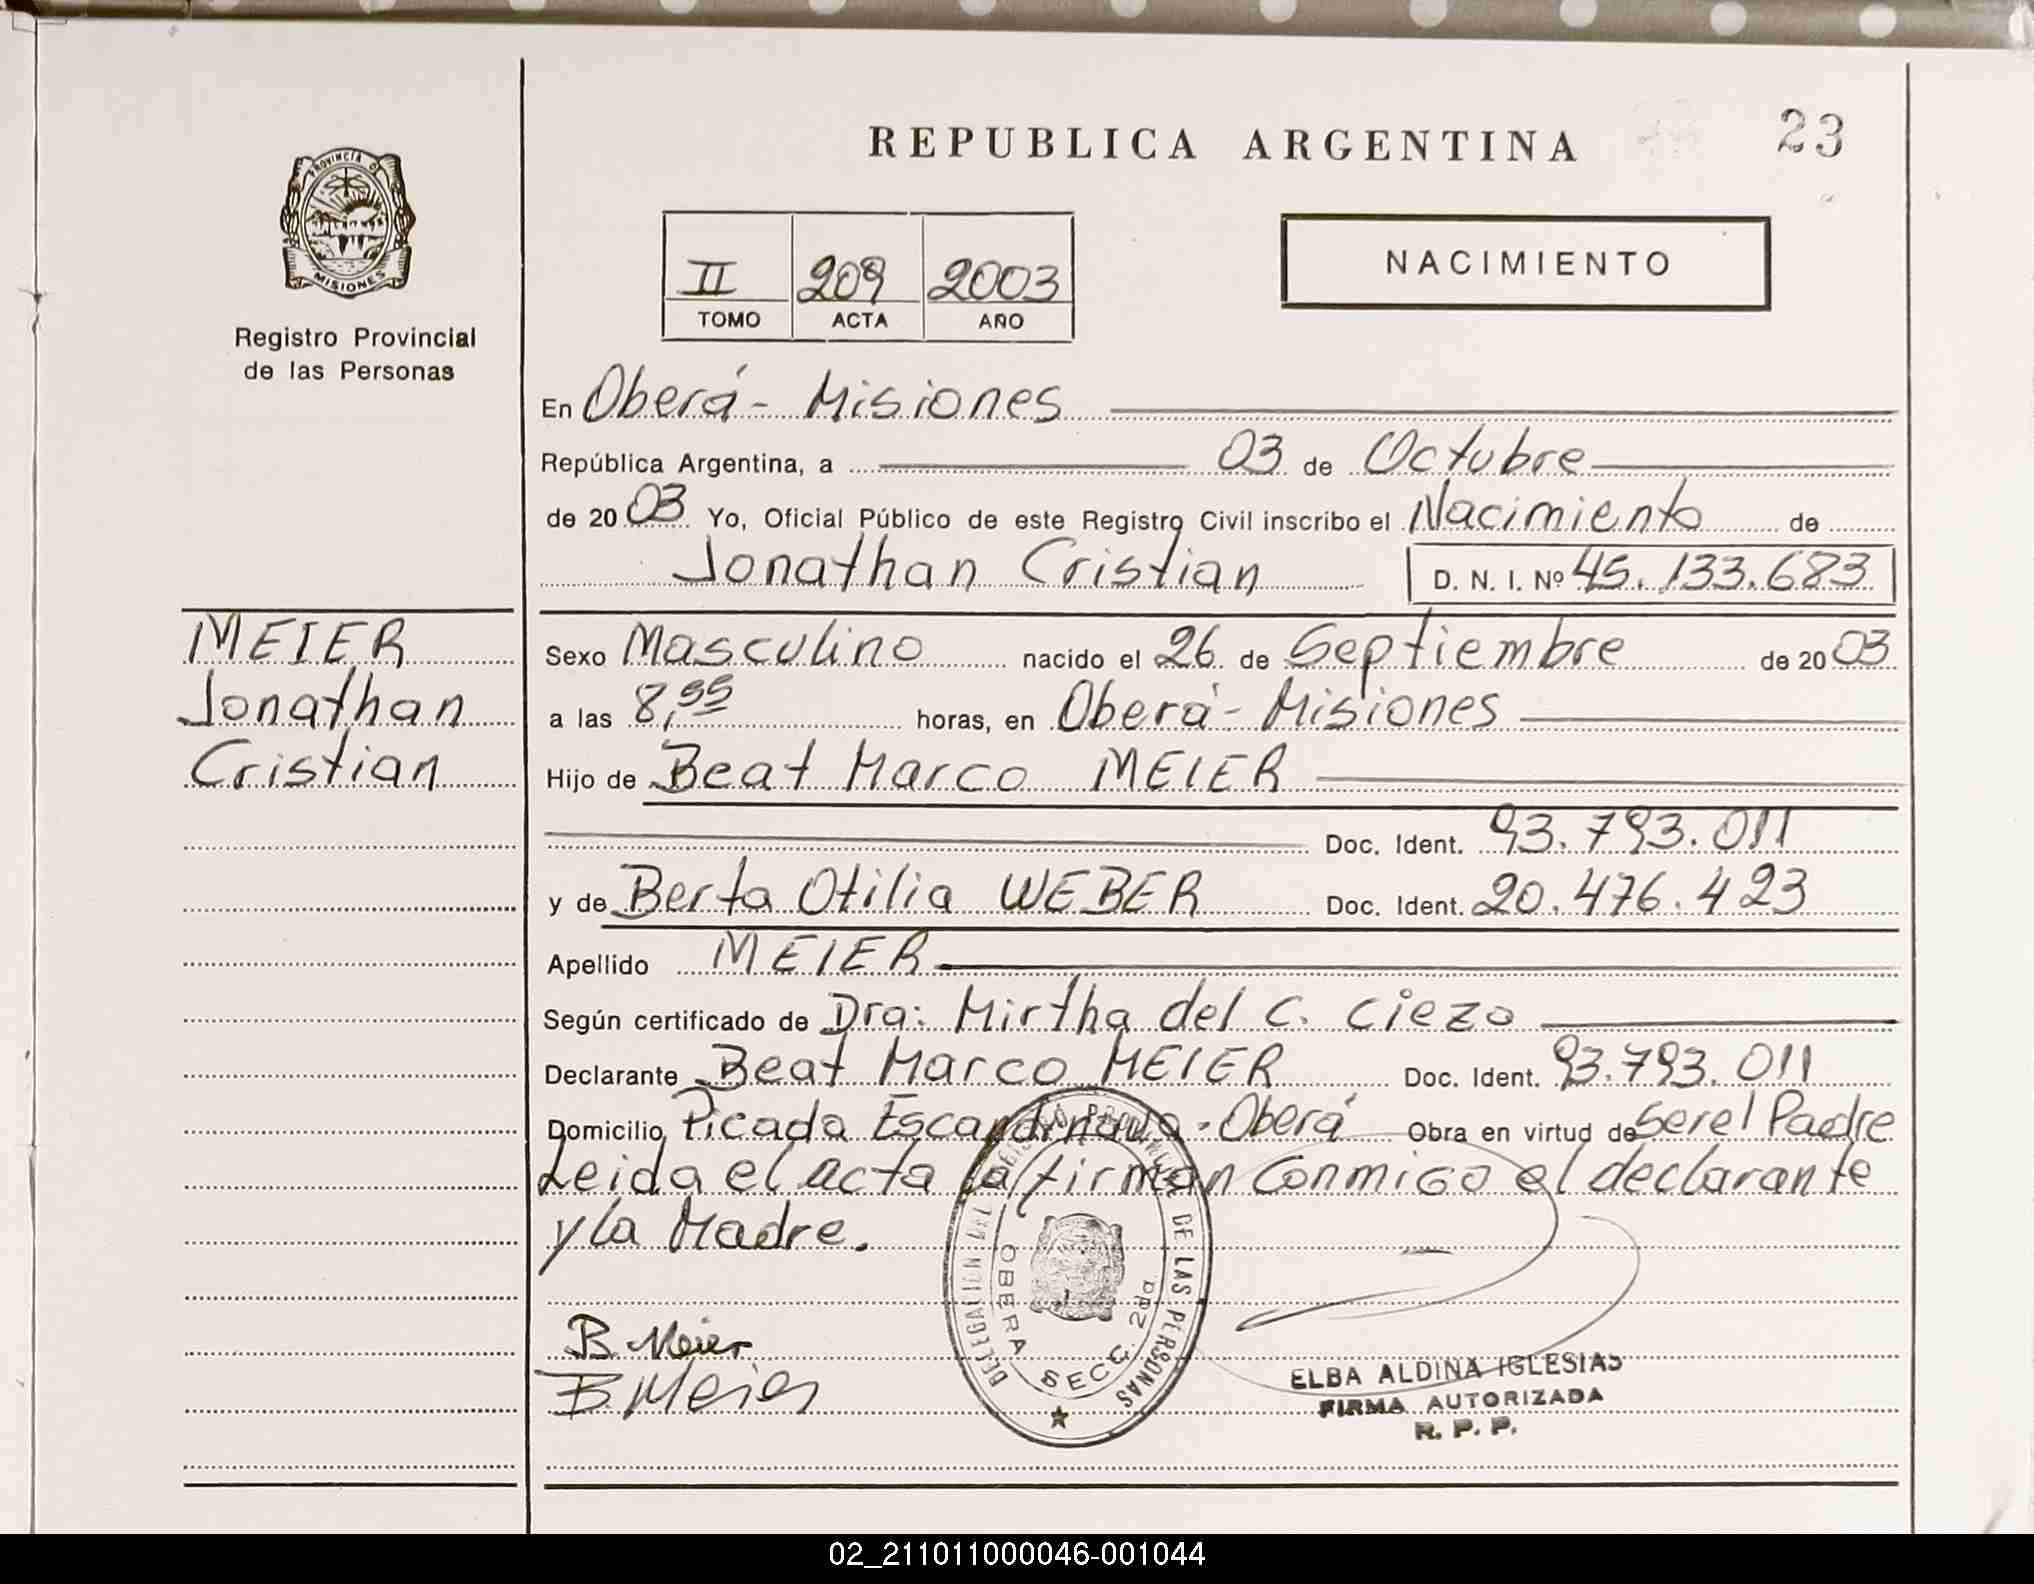 REPUBLICA ARGENTINA
23
PROVINCIA D
MISIONES
Registro Provincial
de las Personas
II 209 2003
TOMO ACTA AÑO
NACIMIENTO
En Oberá - Misiones
República Argentina, a 03 de Octubre
de 2003 Yo, Oficial Público de este Registro Civil inscribo el Nacimiento de
Jonathan Cristian D. N. I. Nº 45.133.683
MEIER
Jonathan
Cristian
Sexo Masculino nacido el 26 de Septiembre de 2003
a las 8,55 horas, en Oberá - Misiones
Hijo de Beat Marco MEIER
Doc. Ident. 93.793.011
y de Berta Otilia WEBER Doc. Ident. 20.476.423
Apellido MEIER
Según certificado de Dra: Mirtha del C. Ciezo
Declarante Beat Marco MEIER Doc. Ident. 93.793.011
Domicilio Picada Escandinava - Oberá Obra en virtud de Ser el Padre
Leida el acta la firman conmigo el declarante
y la Madre.
B. Meier
B. Meier
DELEGACION DEL REGISTRO PROVINCIAL DE LAS PERSONAS
OBERA SECC. 2da
ELBA ALDINA IGLESIAS
FIRMA AUTORIZADA
R. P. P.
02_211011000046-001044